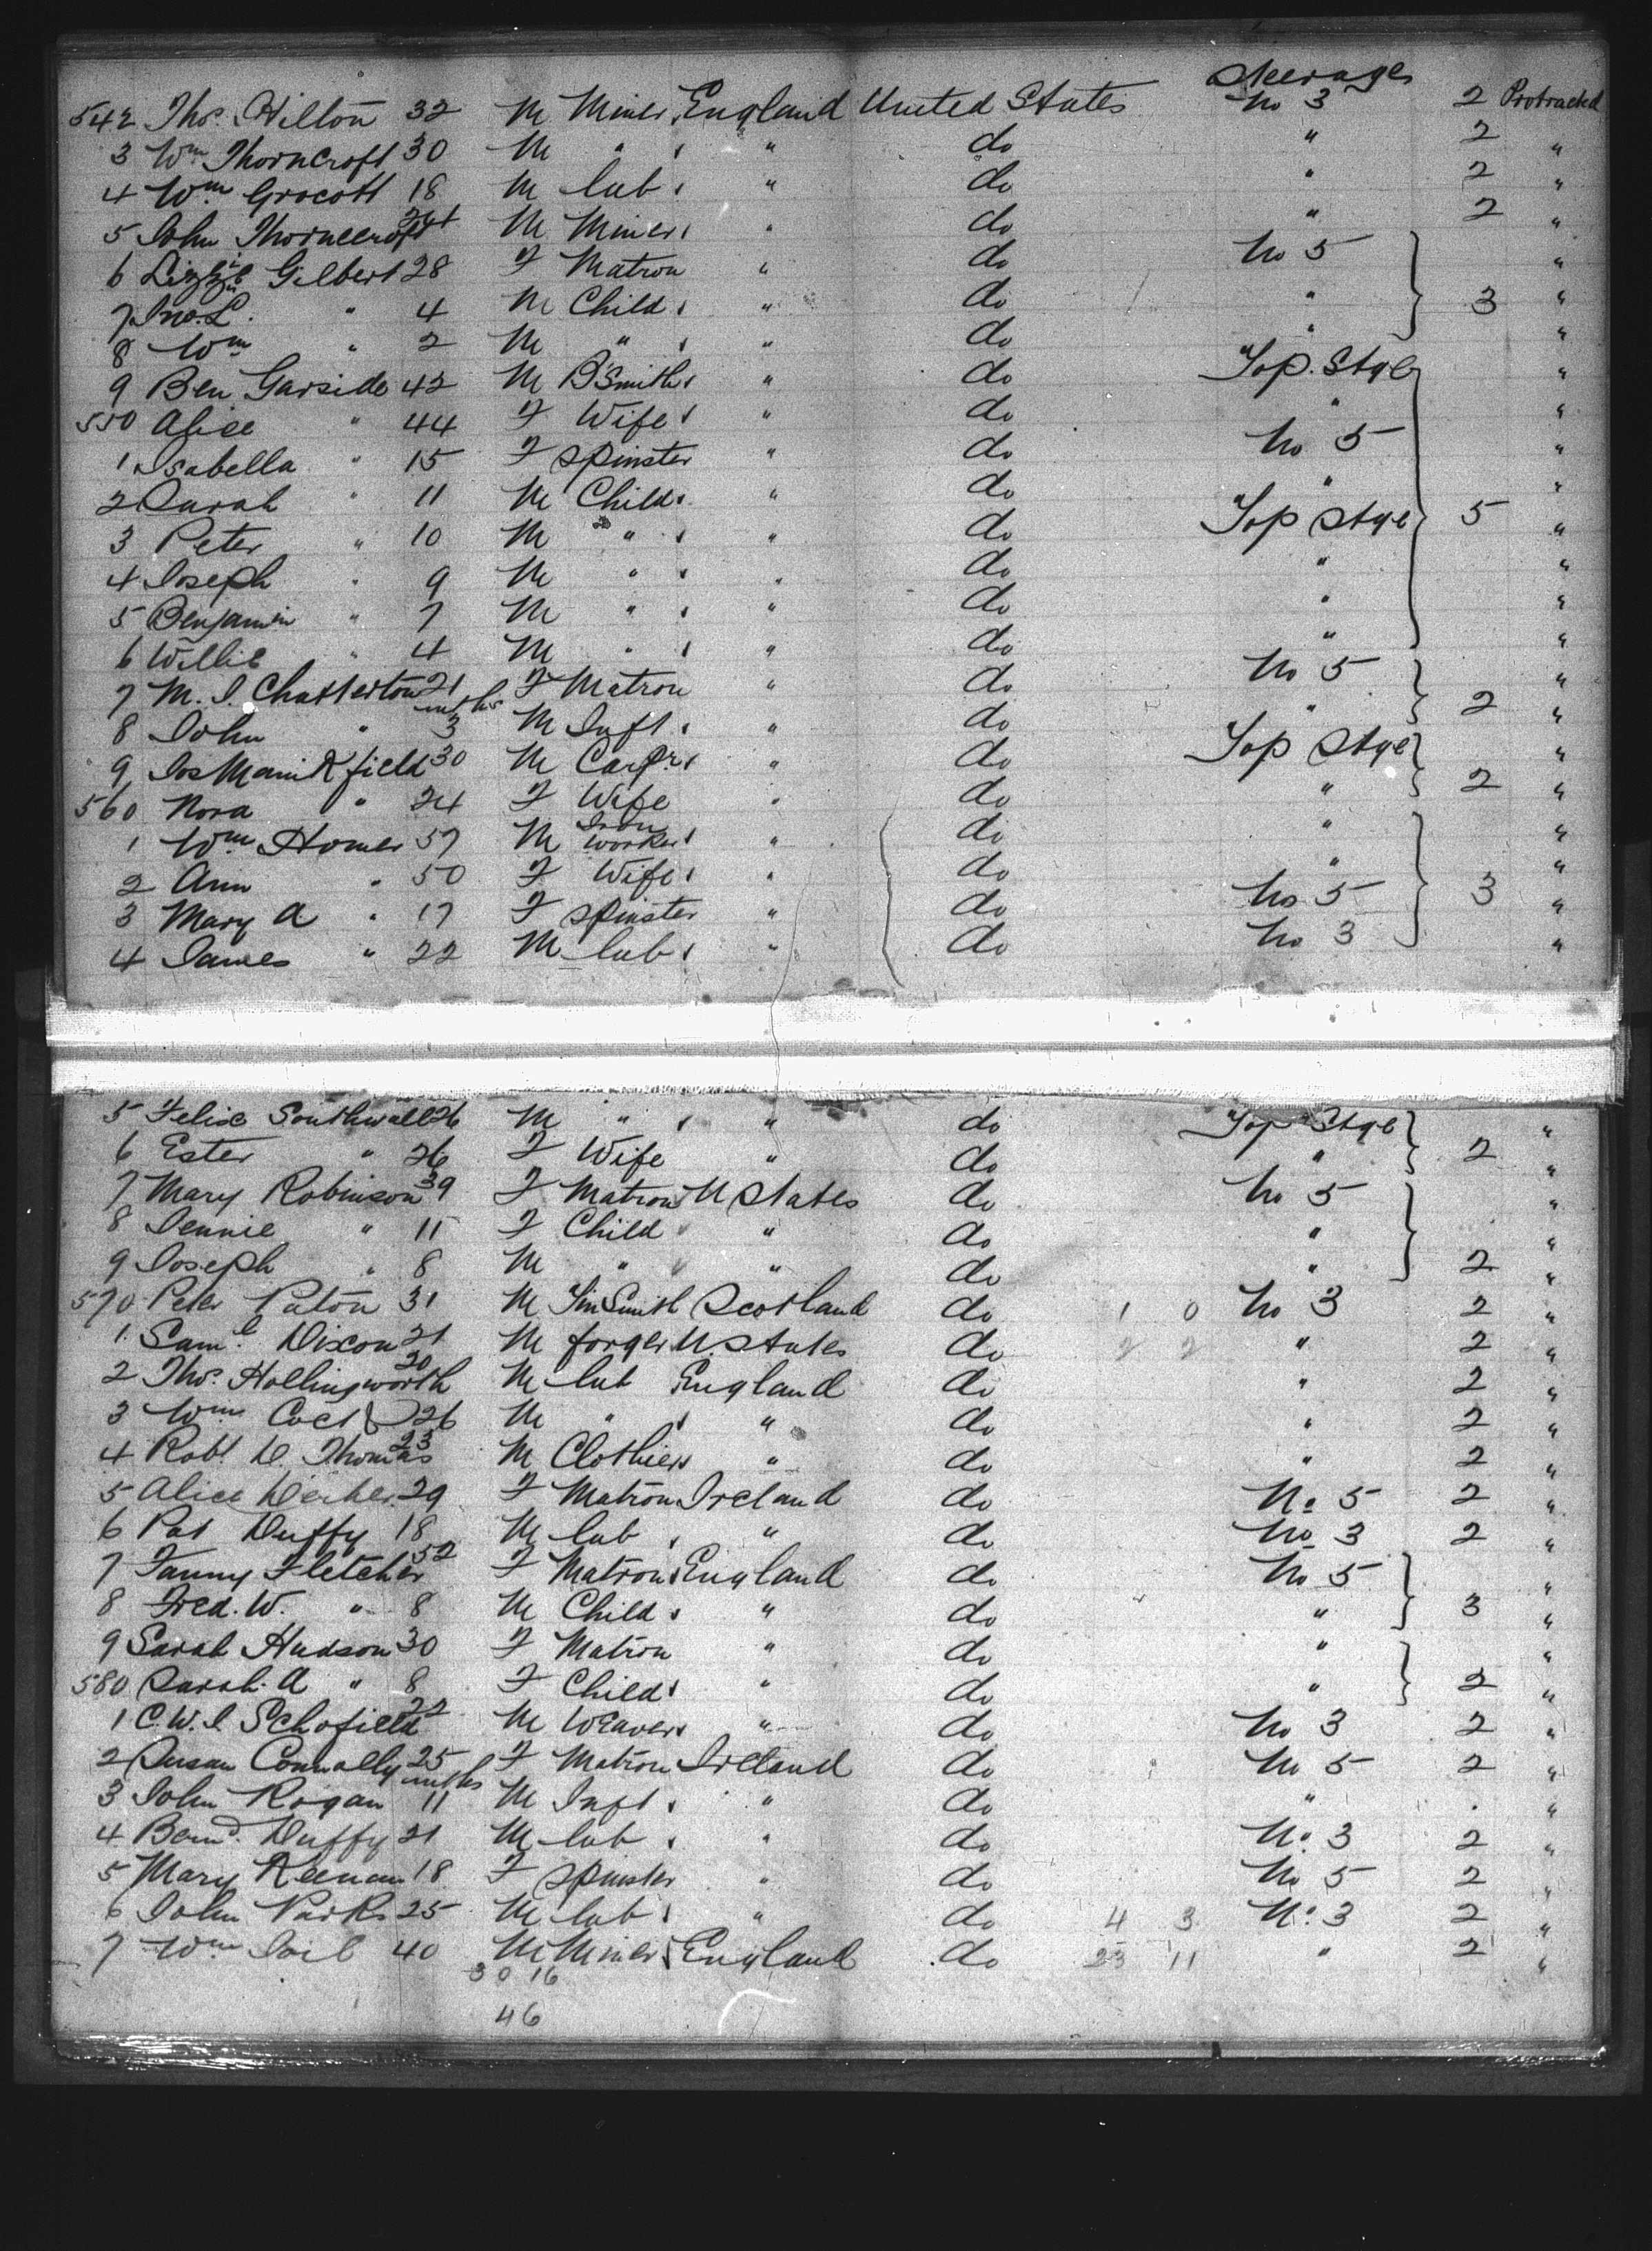 Steerage
542 Thos. Hilton 32 M Miner England United States No 3 2 Protracted
3 Wm Thorncroft 30 M " " do " 2 "
4 Wm Grocott 18 M lab " do " 2 "
5 John Thorneecroft 24 M Miner " do " 2 "
6 Lizzie Gilbert 28 F Matron " do No 5 "
7 Jno. L. " 4 M Child " do " 3 "
8 Wm " 2 M " " do " "
9 Ben Garside 42 M B'Smith " do Top. Stge "
550 Alice " 44 F Wife " do " "
1 Isabella " 15 F Spinster " do No 5 "
2 Sarah " 11 M Child " do " "
3 Peter " 10 M " " do Top Stge 5 "
4 Joseph " 9 M " " do " "
5 Benjamin " 7 M " " do " "
6 Willie " 4 M " " do " "
7 M. J. Chatterton 21 F Matron " do No 5 "
8 John " mths 3 M Inft " do " 2 "
9 Jos 30 M Carpr " do Top Stge "
560 Nora " 24 F Wife " do " 2 "
1 Wm Homer 57 M Iron worker " do " "
2 Ann " 50 F Wife " do " "
3 Mary A " 17 F Spinster " do No 5 3 "
4 James " 22 M lab " do No 3 "
5 Felix Southwall 26 M " " do Top Stge "
6 Ester " 26 F Wife " do " 2 "
7 Mary Robinson 39 F Matron U States do No 5 "
8 Jennie " 11 F Child " do " "
9 Joseph " 8 M " " do " 2 "
570 Peter Paton 31 M TinSmith Scotland do 1 0 No 3 2 "
1 Saml. Dixon 21 M forger U. States do 2 2 " 2 "
2 Thos. Hollingworth 20 M lab England do " 2 "
3 Wm 26 M " " do " 2 "
4 Robt D. Thomas 23 M Clothier " do " 2 "
5 Alice 29 F Matron Ireland do No 5 2 "
6 Pat Duffy 18 M lab " do No 3 2 "
7 Fanny Fletcher 52 F Matron England do No 5 "
8 Fred. W. " 8 M Child " do " 3 "
9 Sarah Hudson 30 F Matron " do " "
580 Sarah. A " 8 F Child " do " 2 "
1 C. W. J. Schofield 22 M Weaver " do No 3 2 "
2 Susan Connally 25 F Matron Ireland do No 5 2 "
3 John Rogan mths 11 M Inft " do " "
4 Bernd. Duffy 21 M lab " do No 3 2 "
5 Mary Keenan 18 F Spinster " do No 5 2 "
6 John Parks 25 M lab " do 4 3 No 3 2 "
7 Wm 40 M Miner England do 23 11 " 2 "
30 16
46